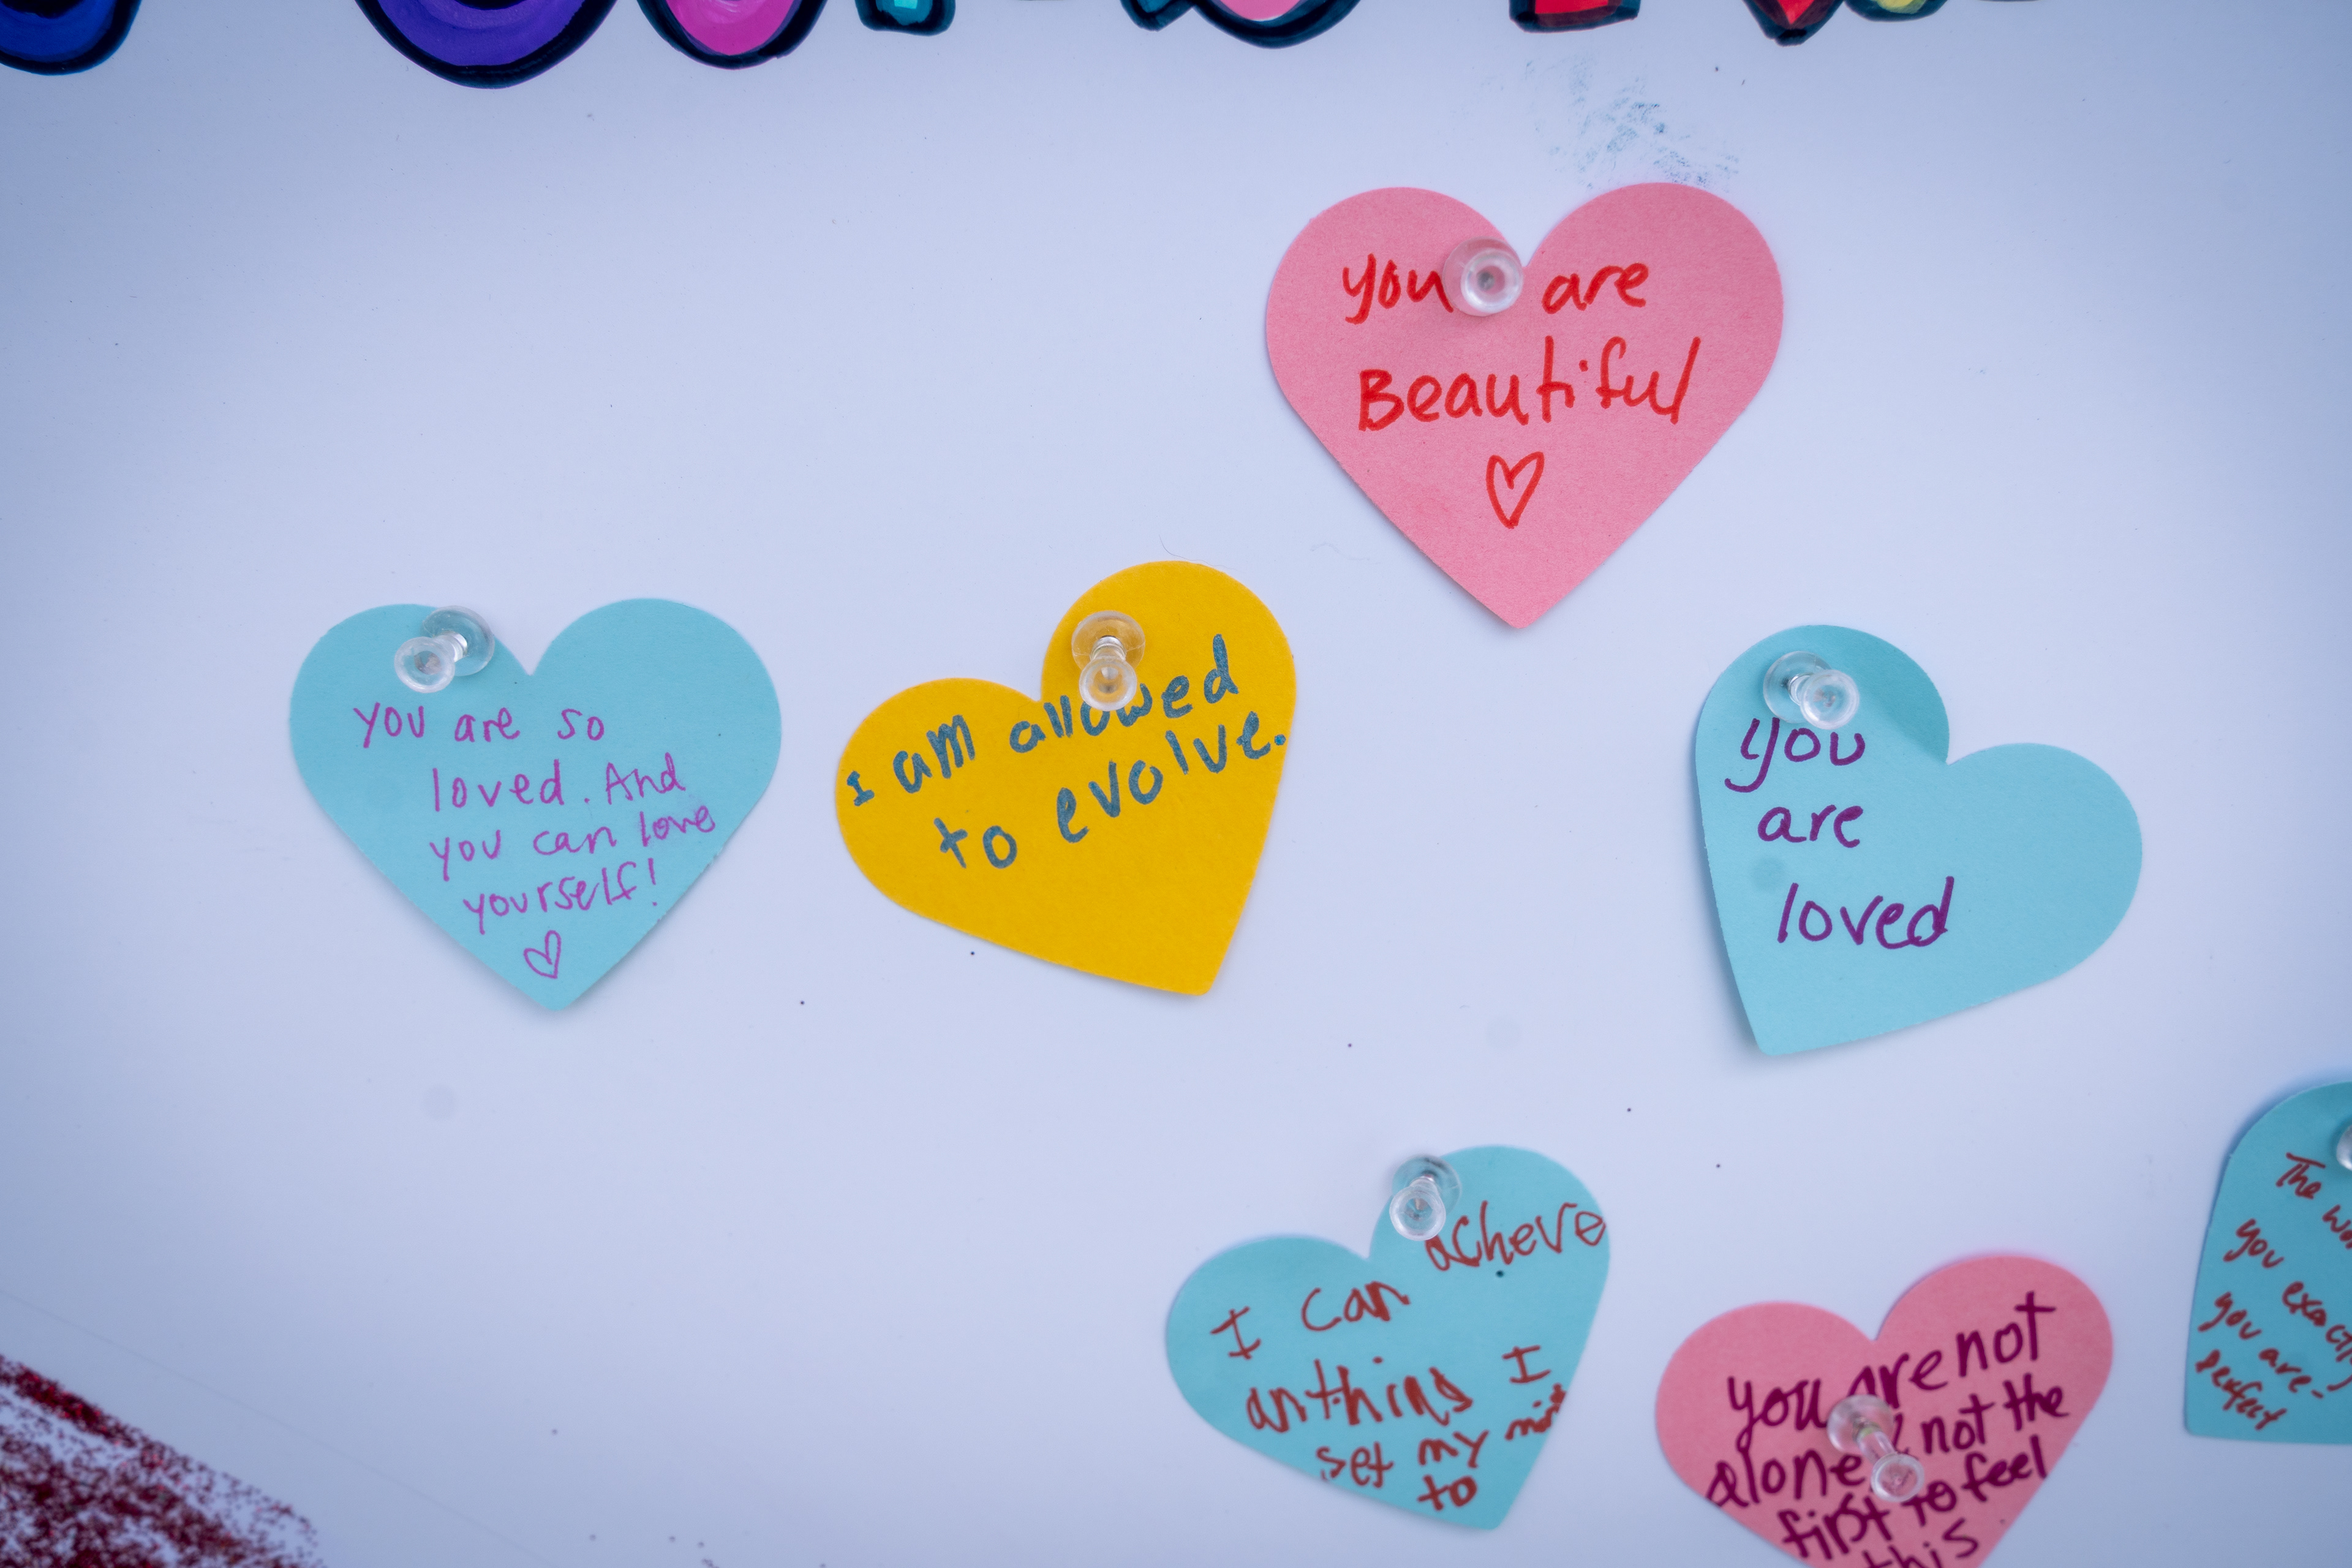 you are
Beautiful
you are so
loved. And
you can love
yourself!
I am allowed
to evolve.
you
are
loved
I can acheve
anthing I
set my mind
to
you are not
alone not the
first to feel
this
The
you exactly
you are-
perfect